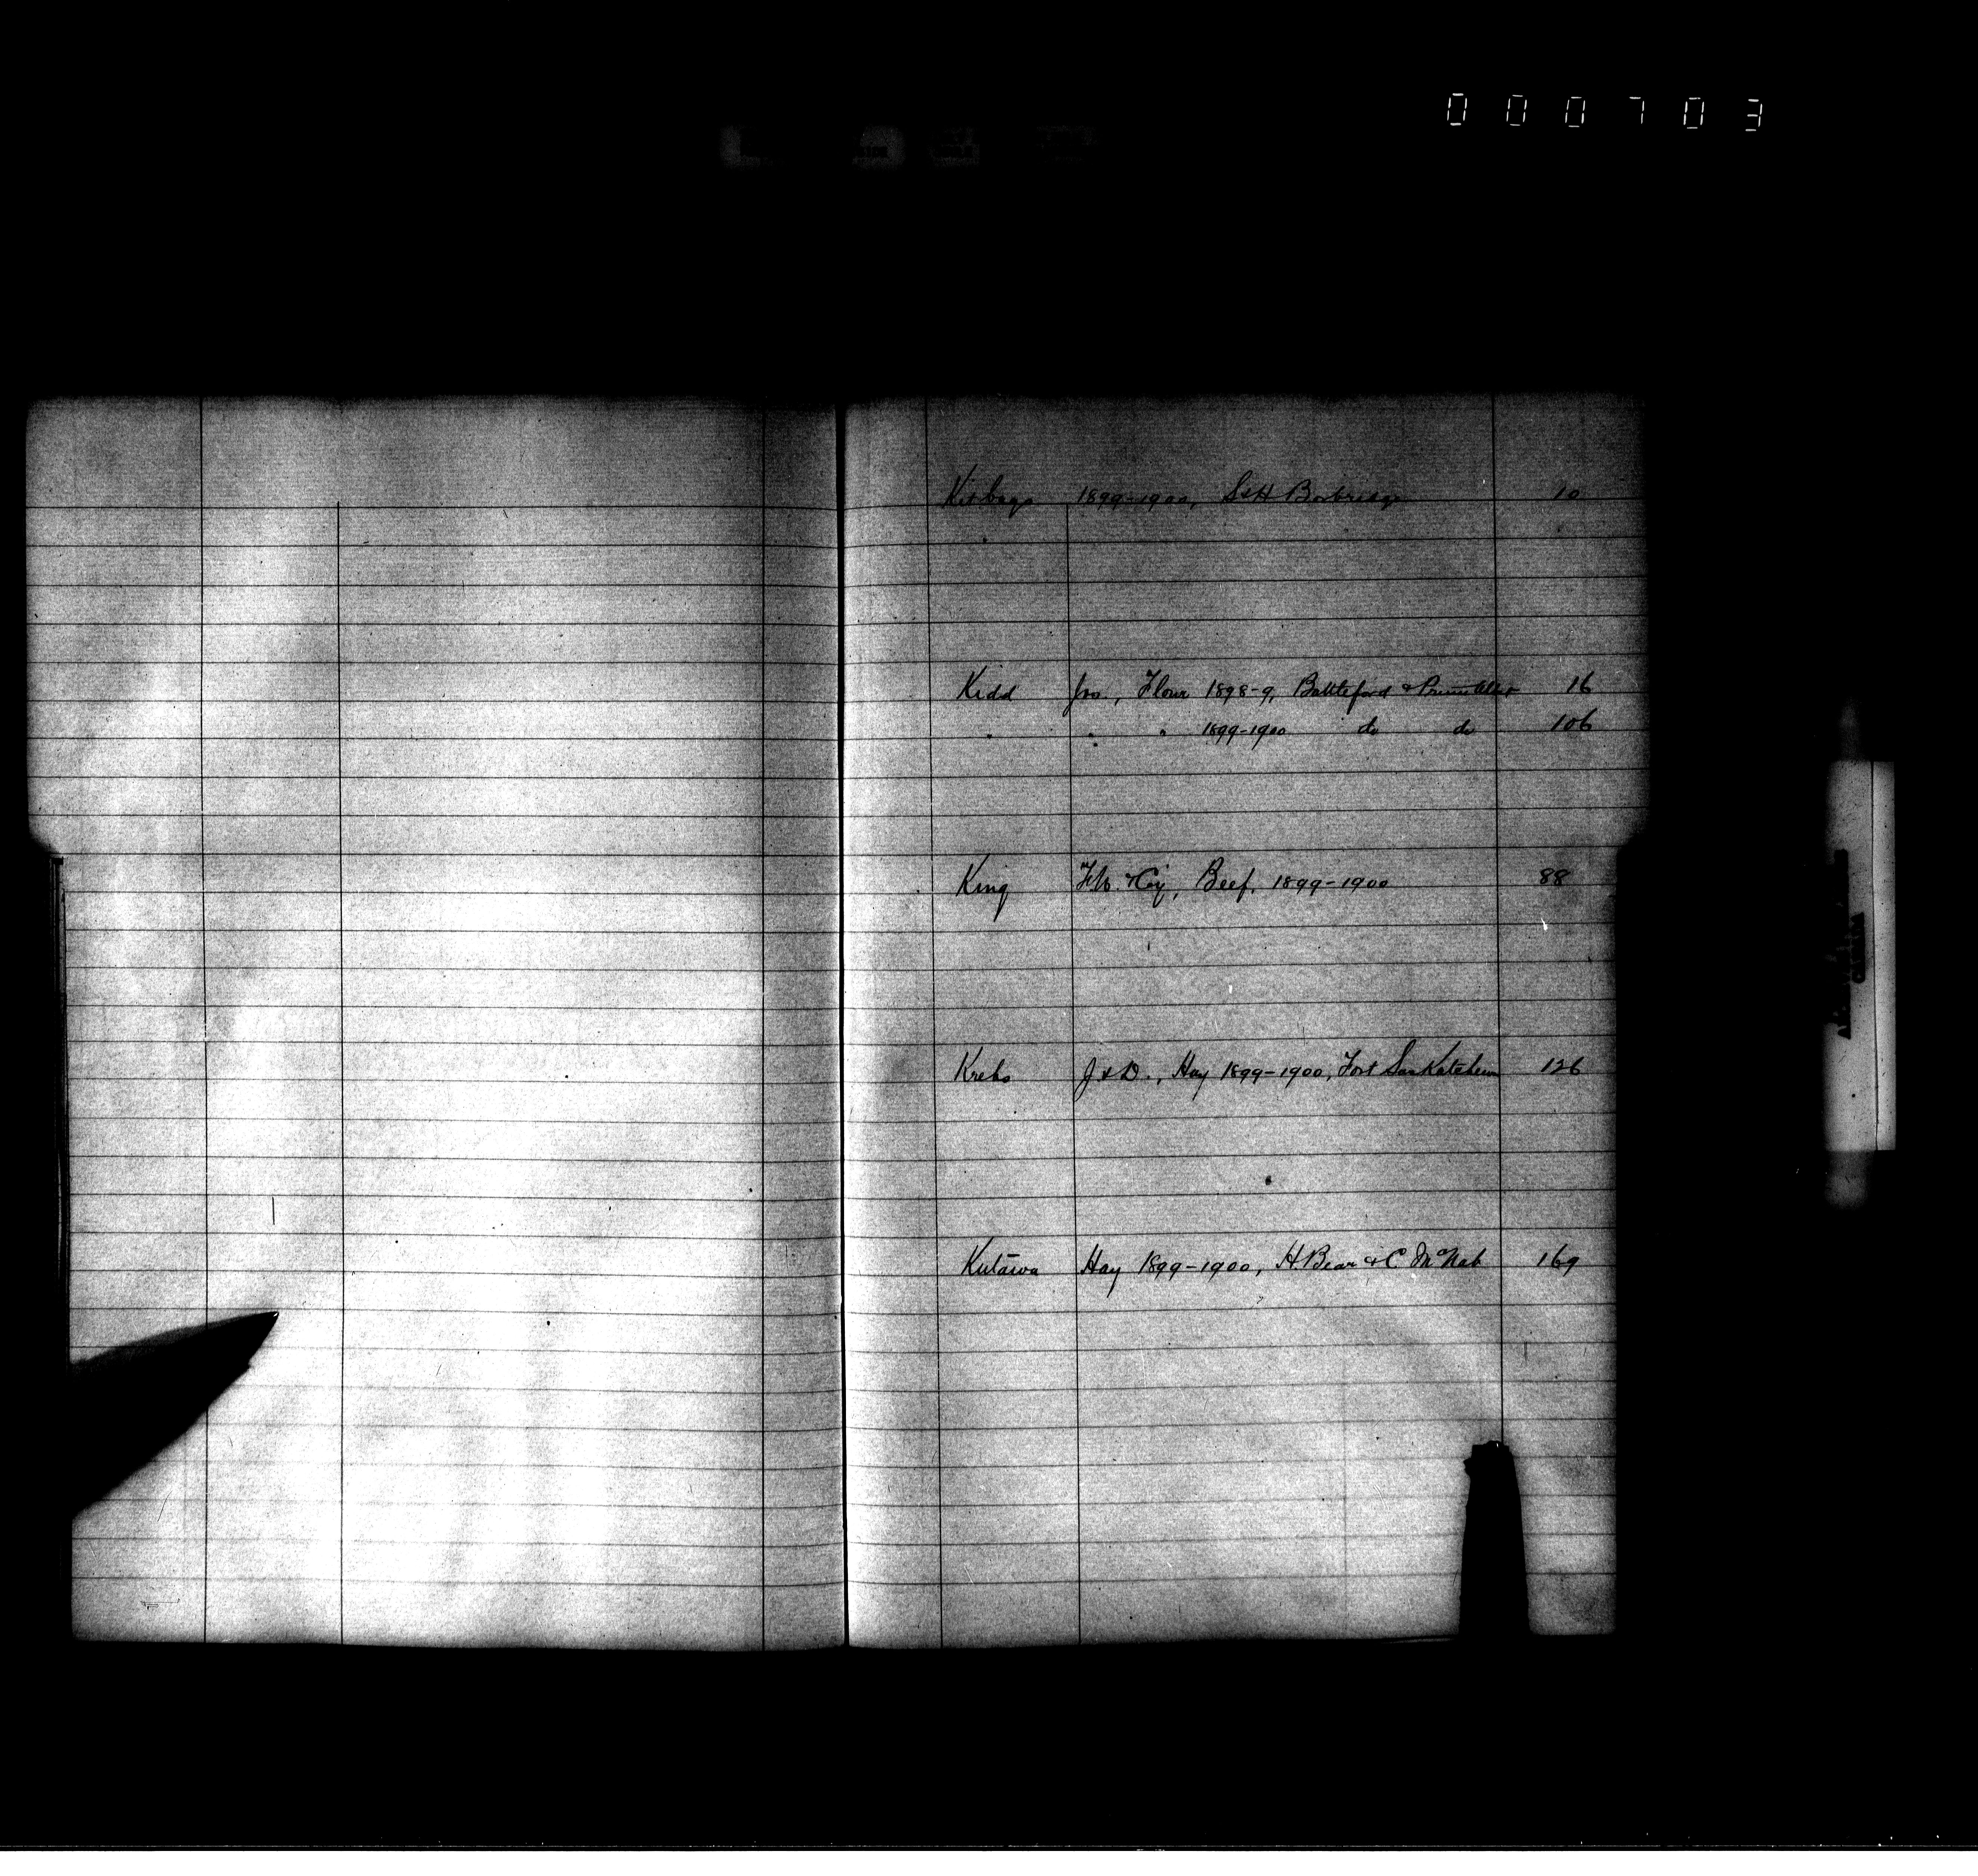 000703
Kitbags 1899-1900, S & H Borbridge 10
Kidd Jno., Flour 1898-9, Battleford & Prince Albert 16
" " " 1899-1900 do do 106
King & Coy, Beef, 1899-1900 88
Krebs J & D., Hay 1899-1900, Fort Saskatchewan 126
Kutawa Hay 1899-1900, H. Bear & C McNab 169